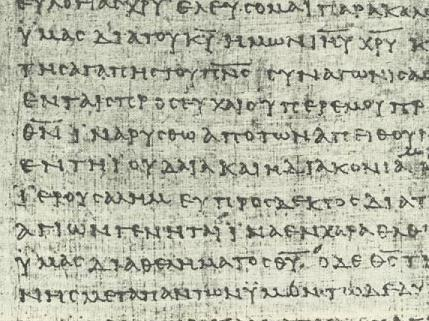 ΕΥΛΟΓΙΑСΧΡΥ ΕΛΕΥСΟΜΑΙ ΠΑΡΑΚΑΛ
ΫΜΑС ΔΙΑ ΤΟΥ Κ̅Υ̅ ΗΜΩΝ Ι̅Η̅Υ̅ Χ̅Ρ̅Υ̅ Κ
ΤΗС ΑΓΑΠΗС ΤΟΥ Π̅Ν̅С̅ СΥΝΑΓΩΝΙСΑ
ΕΝ ΤΑΙС ΠΡΟСΕΥΧΑΙС ΥΠΕΡ ΕΜΟΥ ΠΡ
Θ̅Ν̅ ΪΝΑ ΡΥСΘΩ ΑΠΟ ΤΩΝ ΑΠΕΙΘΟΥ
ΕΝ ΤΗ ΙΟΥΔΑΙΑ ΚΑΙ Η ΔΙΑΚΟΝΙΑ
ΪΕΡΟΥСΑΛΗΜ ΕΥΠΡΟСΔΕΚΤΟС ΔΙΑ Τ
ΑΓΙΩΝ ΓΕΝΗΤΑΙ ΪΝΑ ΕΝ ΧΑΡΑ ΕΛΘ
ΫΜΑС ΔΙΑ ΘΕΛΗΜΑΤΟС Θ̅Υ̅ Ο ΔΕ Θ̅С̅ Τ
ΝΗС ΜΕΤΑ ΠΑΝΤΩΝ ΫΜΩΝ ΤΩ ΔΕ ΔΥ